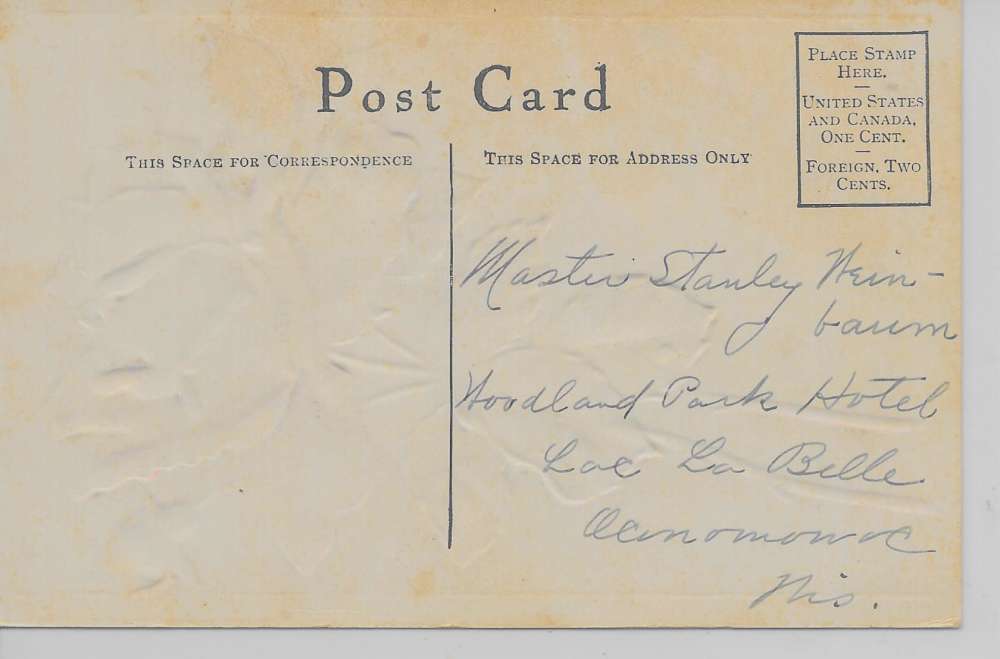 Post Card
PLACE STAMP
HERE.
—
UNITED STATES
AND CANADA,
ONE CENT.
—
FOREIGN, TWO
CENTS.
THIS SPACE FOR CORRESPONDENCE
THIS SPACE FOR ADDRESS ONLY
Master Stanley Wein-
baum
Woodland Park Hotel
Lac La Belle
Oconomowoc
Wis.